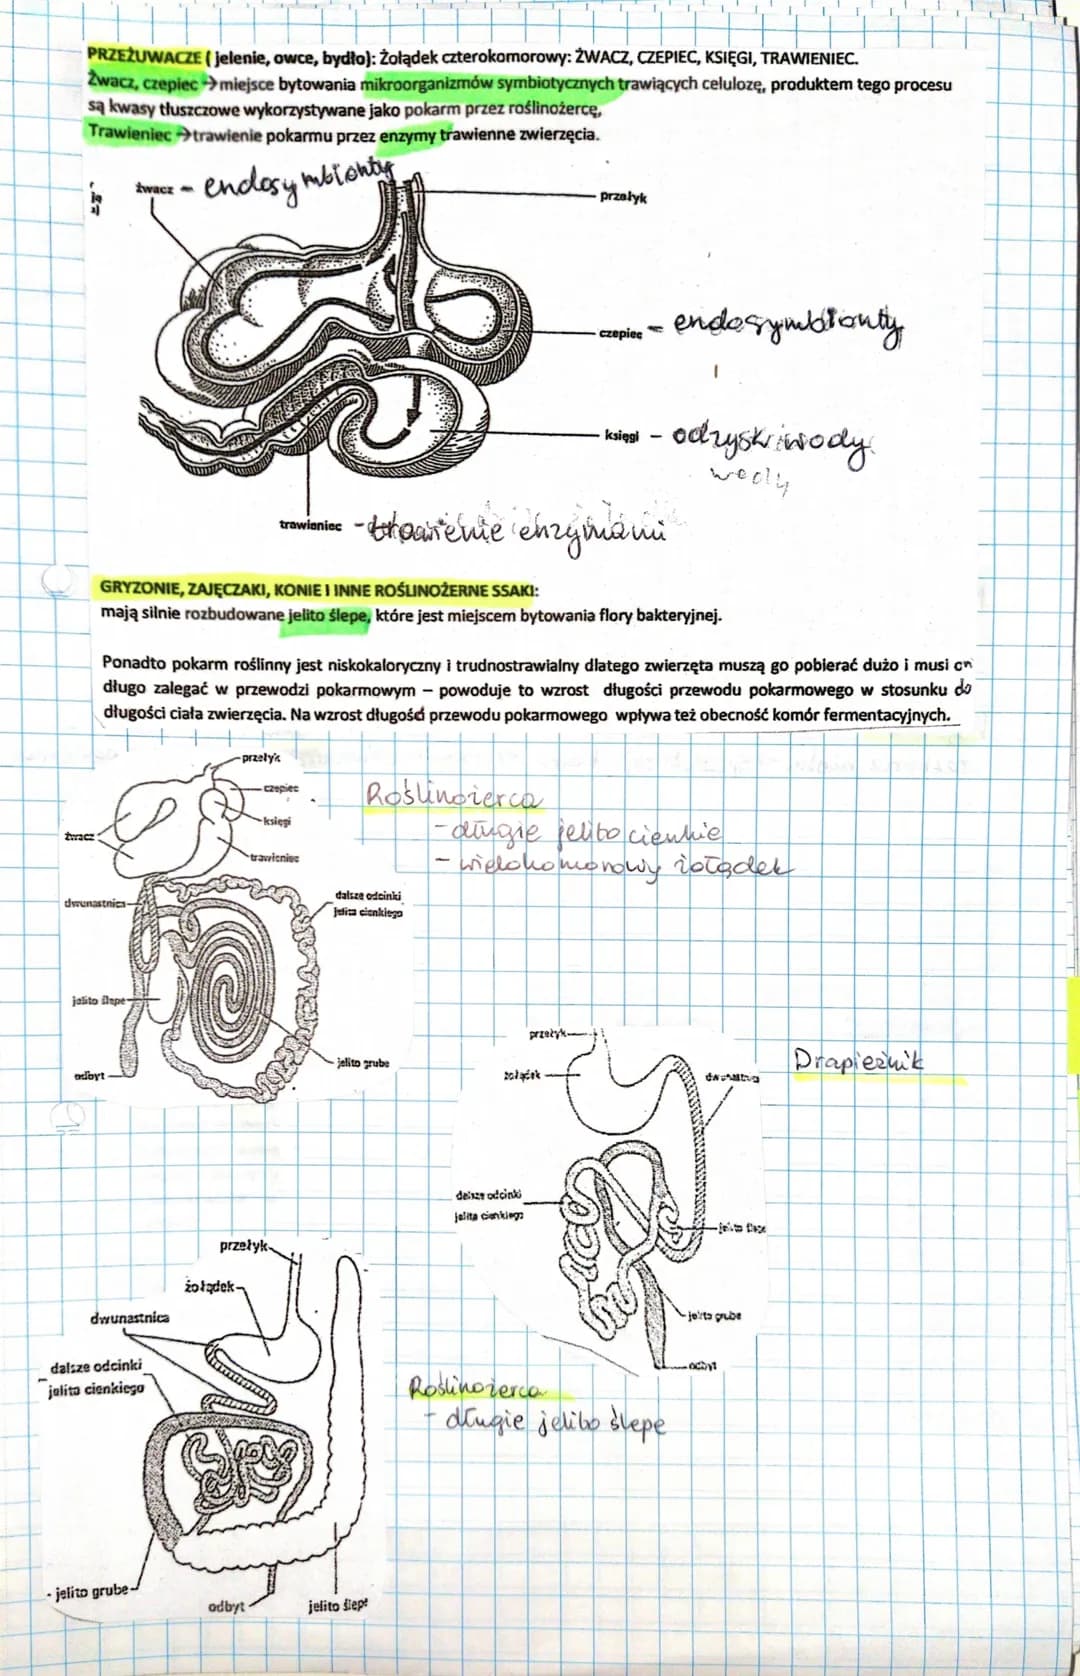 PRZEŻUWACZE ( jelenie, owce, bydło): Żołądek czterokomorowy: ŻWACZ, CZEPIEC, KSIĘGI, TRAWIENIEC.
Żwacz, czepiec → miejsce bytowania mikroorganizmów symbiotycznych trawiących celulozę, produktem tego procesu
są kwasy tłuszczowe wykorzystywane jako pokarm przez roślinożercę,
Trawieniec → trawienie pokarmu przez enzymy trawienne zwierzęcia.
żwacz - endosymbionty
przełyk
czepiec - endosymbionty
księgi - odzysk wody
wody
trawieniec - trawienie enzymami
GRYZONIE, ZAJĘCZAKI, KONIE I INNE ROŚLINOŻERNE SSAKI:
mają silnie rozbudowane jelito ślepe, które jest miejscem bytowania flory bakteryjnej.
Ponadto pokarm roślinny jest niskokaloryczny i trudnostrawialny dlatego zwierzęta muszą go pobierać dużo i musi on
długo zalegać w przewodzi pokarmowym – powoduje to wzrost długości przewodu pokarmowego w stosunku do
długości ciała zwierzęcia. Na wzrost długość przewodu pokarmowego wpływa też obecność komór fermentacyjnych.
przełyk
czepiec
księgi
żwacz
trawieniec
dwunastnica
dalsze odcinki
jelita cienkiego
jelito ślepe
jelito grube
odbyt
Roślinożerca
- długie jelito cienkie
- wielokomorowy żołądek
przełyk
żołądek
dwunastnica
dalsze odcinki
jelita cienkiego
jelito ślepe
jelito grube
odbyt
Drapieżnik
przełyk
żołądek
dwunastnica
dalsze odcinki
jelita cienkiego
jelito grube
odbyt
jelito ślepe
Roślinożerca
- długie jelito ślepe